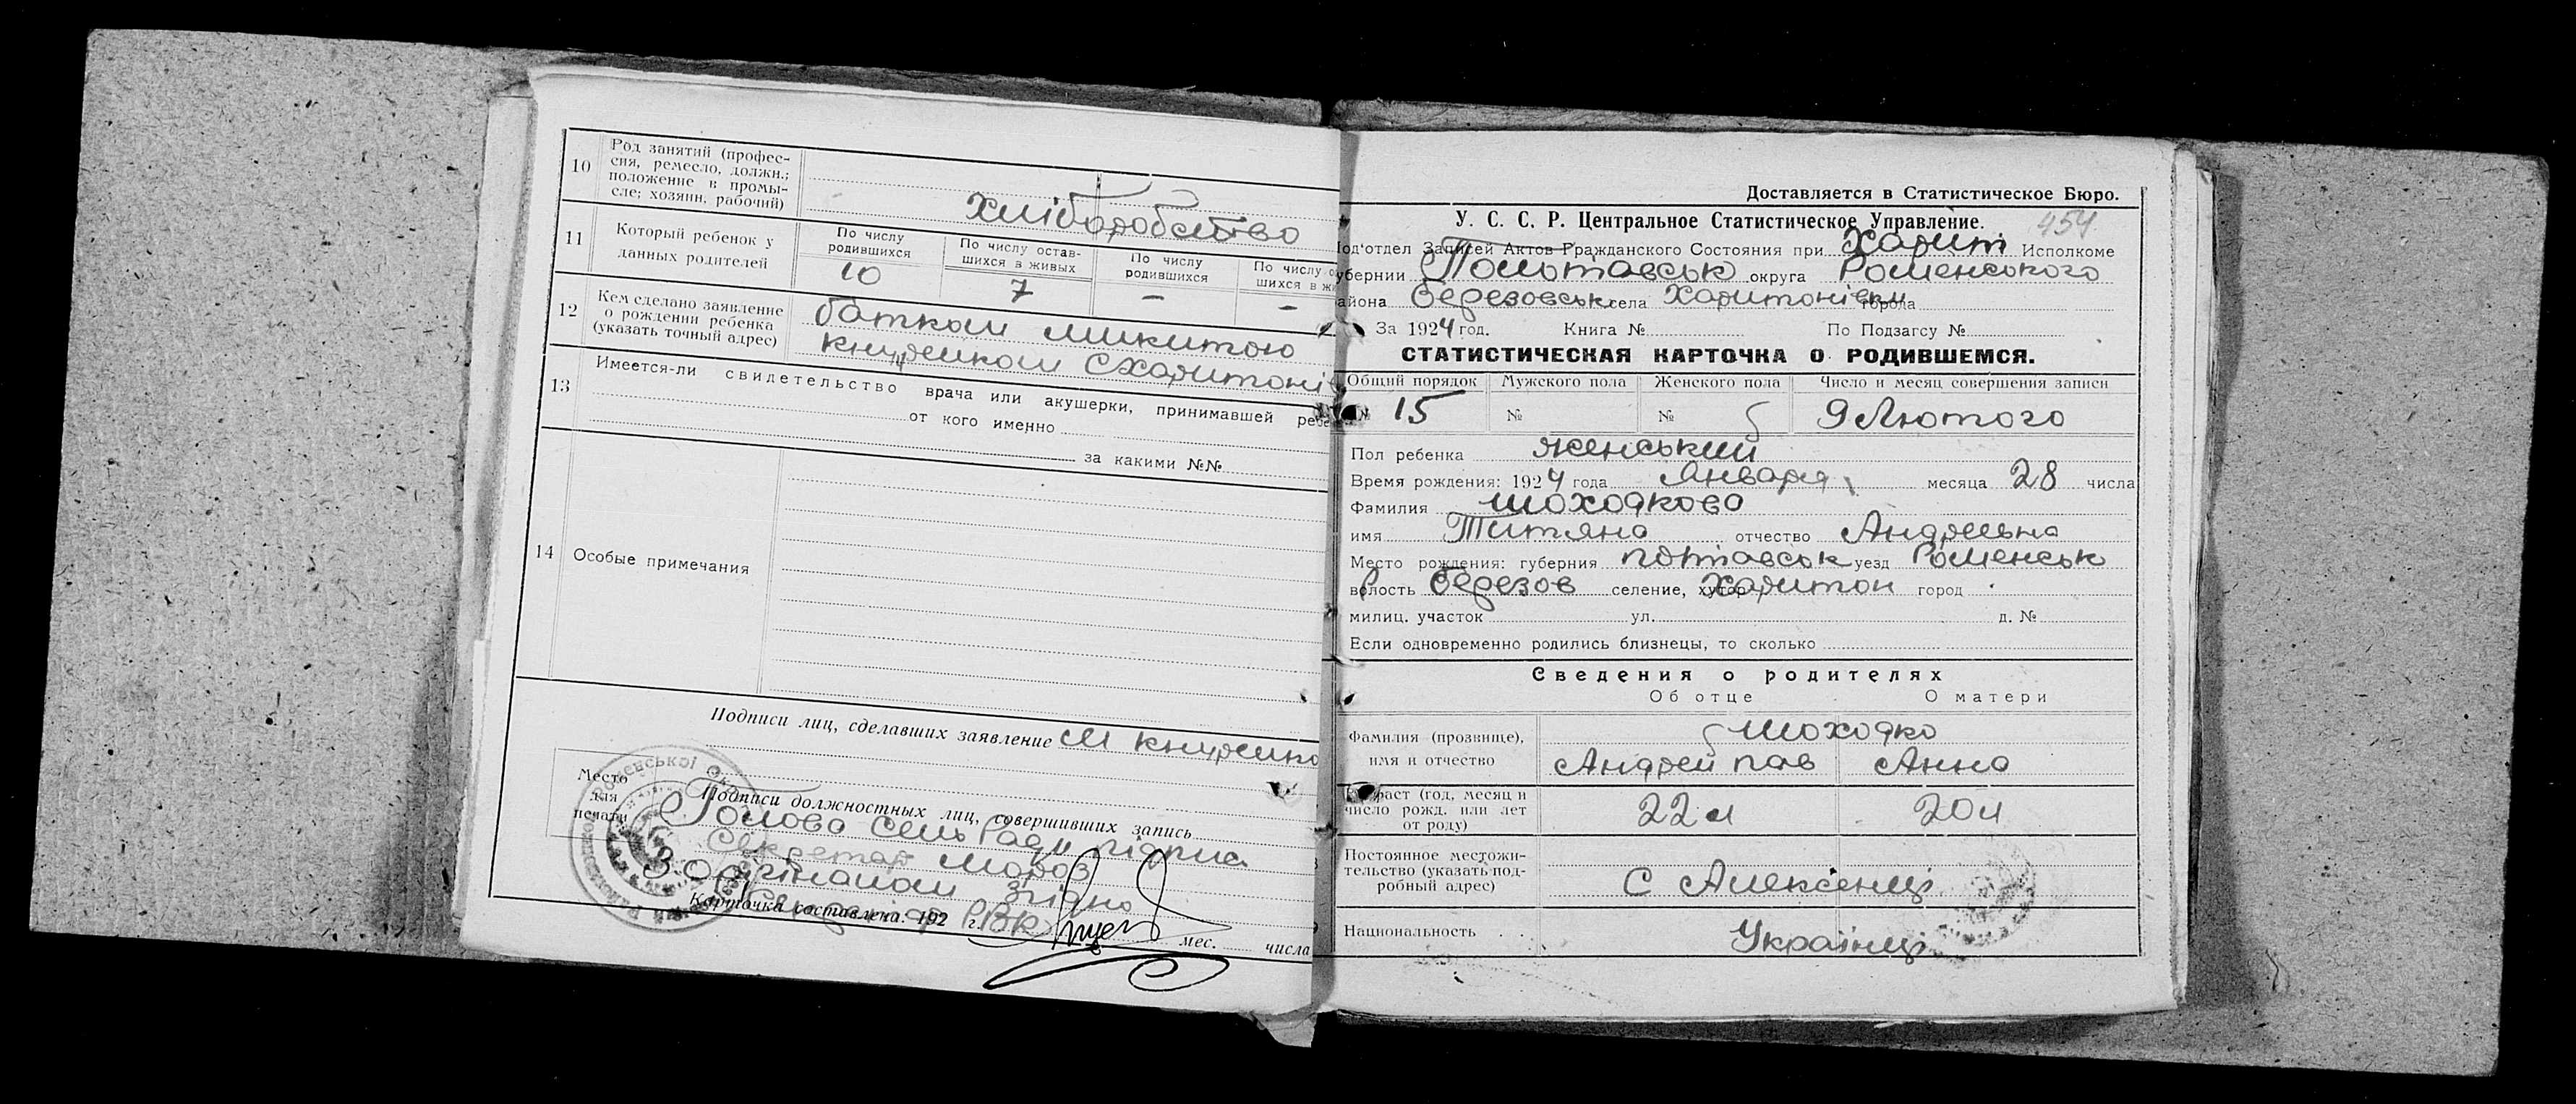 10 Род занятий (профес-
сия, ремесло, должн.;
положение в промы-
сле; хозяин, рабочий)
Хліборобство
11 Который ребенок у
данных родителей
По числу
родившихся
По числу остав-
шихся в живых
По числу
родившихся
По числу о
шихся в жи
10 7 – –
12 Кем сделано заявление
о рождении ребенка
(указать точный адрес)
батком Микитою
С Харитоні
13 Имеется-ли свидетельство врача или акушерки, принимавшей ребе
от кого именно
за какими №№
14 Особые примечания
Подписи лиц, сделавших заявление
Место
для
печати
Подписи должностных лиц, совершивших запись
Голова Сель Ради підпис
Секретар Мороз
З орігіналом Згідно
Секретар РВК
Карточка составлена: 192 г. мес. числа
Доставляется в Статистическое Бюро.
У. С. С. Р. Центральное Статистическое Управление. 454
Под'отдел Записей Актов Гражданского Состояния при Харит Исполкоме
губернии Полтавськ округа Роменського
района Березовськ села Харитонівки города
За 1924 год. Книга № По Подзагсу №
СТАТИСТИЧЕСКАЯ КАРТОЧКА О РОДИВШЕМСЯ.
Общий порядок Мужского пола Женского пола Число и месяц совершения записи
№ 15 № № 9 Лютого
Пол ребенка женський
Время рождения: 1924 года Января месяца 28 числа
Фамилия Шоходкова
имя Титяна отчество Андреевна
Место рождения: губерния Полтавськ уезд Роменськ
волость Березов селение, хутор Харитон город
милиц. участок ул. д. №
Если одновременно родились близнецы, то сколько
Сведения о родителях
Об отце О матери
Фамилия (прозвище),
имя и отчество
Шоходко
Андрей Пав Анна
Возраст (год, месяц и
число рожд. или лет
от роду)
22 л 20 л
Постоянное местожи-
тельство (указать под-
робный адрес)
С Алексенці
Национальность
Українці